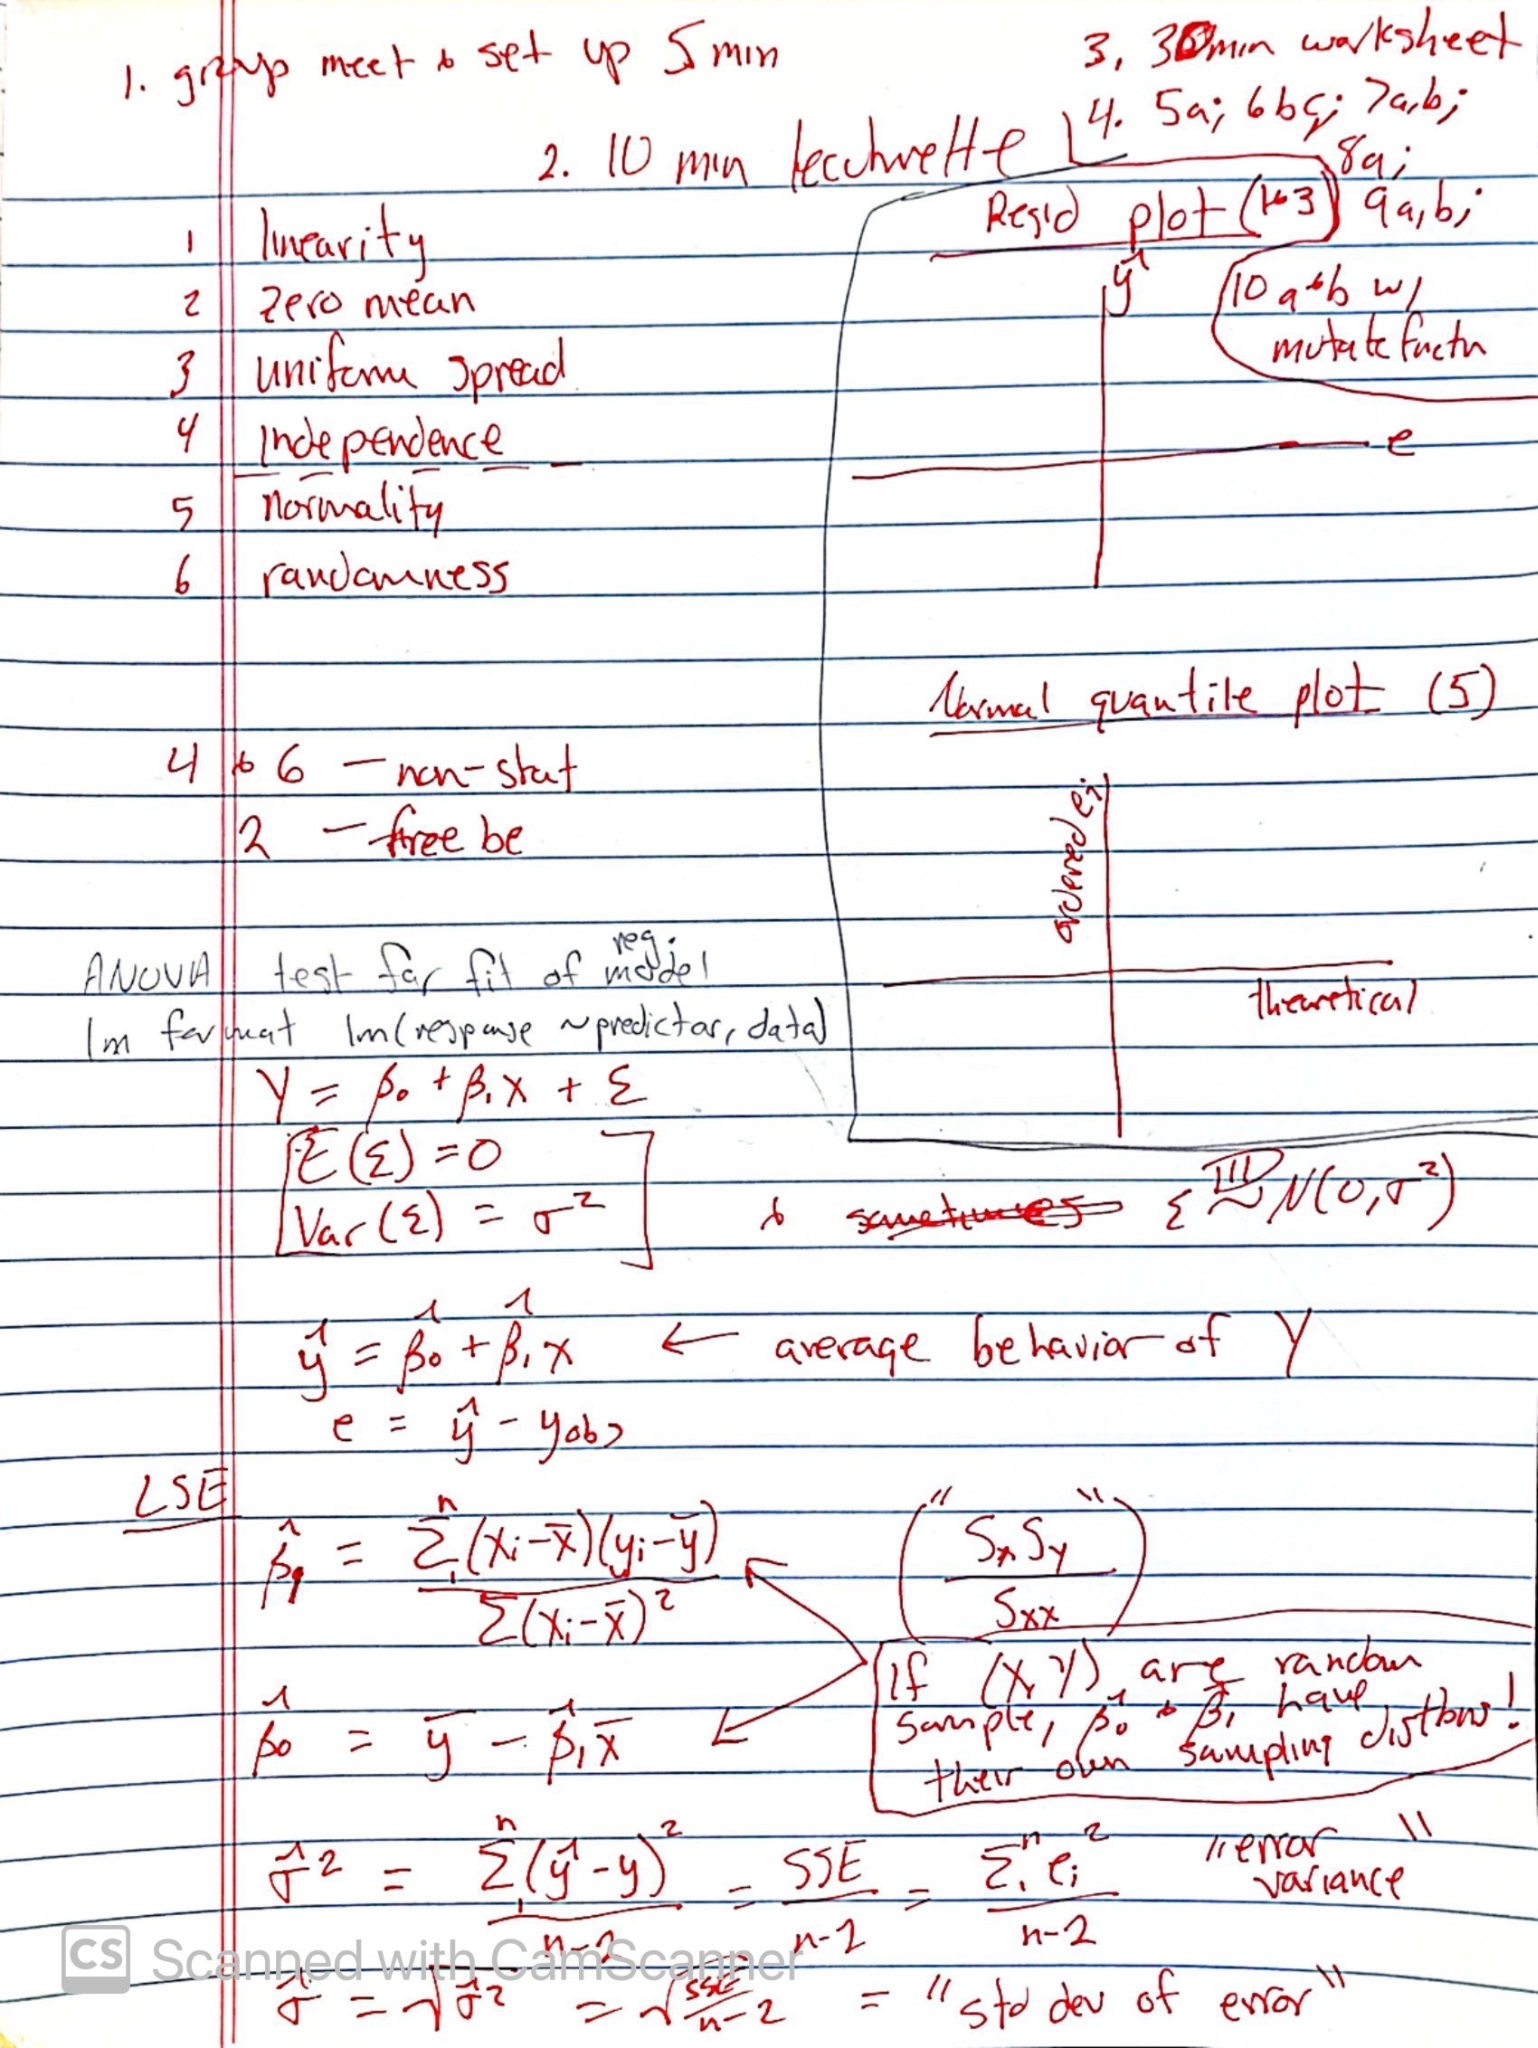 1. group meet & set up 5 min
3. 30min worksheet
4. 5a; 6bc; 7a,b;
8a;
9a,b;
10 a&b w/
mutate functn
2. 10 min lecturette
1 linearity
2 zero mean
3 uniform spread
4 Independence
5 normality
6 randomness
Resid plot (1-3)
ŷ
e
Normal quantile plot (5)
ordered ei
theoretical
4 & 6 — non-stat
2 — free be
ANOVA test for fit of reg. model
lm format lm(response ~predictor, data)
Y = β₀ + β₁X + Ɛ
E(Ɛ) = 0
Var(Ɛ) = σ²
& sometimes Ɛ IID ~ N(0,σ²)
ŷ = β̂₀ + β̂₁x ← average behavior of Y
e = ŷ - yobs
LSE
β̂₁ = Σ₁ⁿ(xi-x̄)(yi-ȳ) / Σ(xi-x̄)²
(" SxSy / Sxx ")
If (X,Y) are random
sample, β̂₀ & β̂₁ have
their own sampling distbns!
β̂₀ = ȳ - β̂₁x̄
σ̂² = Σ₁ⁿ(ŷ-y)² / n-2 = SSE / n-2 = Σ₁ⁿ ei² / n-2 "error variance"
σ̂ = √σ̂² = √SSE/n-2 = "std dev of error"
CS Scanned with CamScanner